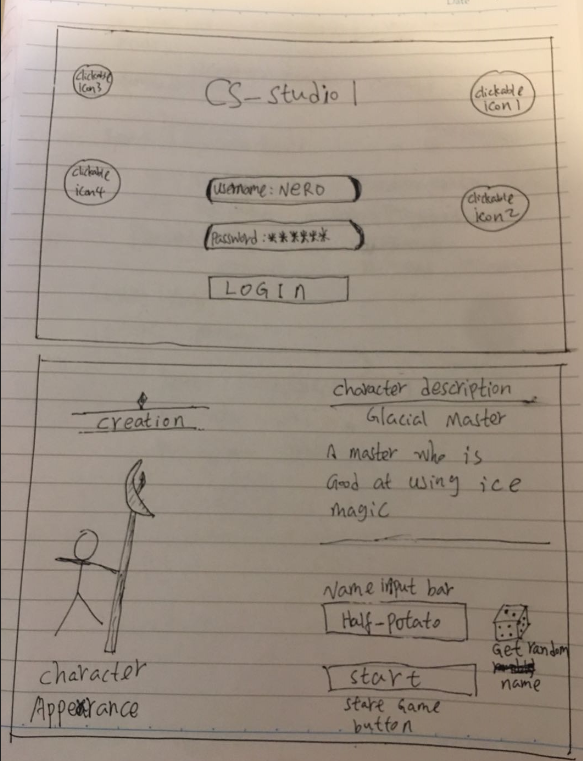 clickable
icon3
CS-studio1
clickable
icon1
clickable
icon4
username: NERO
clickable
icon2
Password: ******
LOGIN
creation
character description
Glacial Master
A master who is
Good at using ice
magic
Name input bar
Half-potato
Get random
name
start
start Game
button
character
Appearance